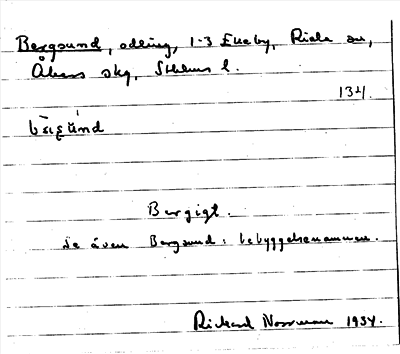 Bergsund, odling, 1-3 Ekeby, Riala sn,
Åkers skg, Sthlms l.
134.
Bergigt.
Se även Bergsund i bebyggelsenamnen.
Rickard Norrman 1934.